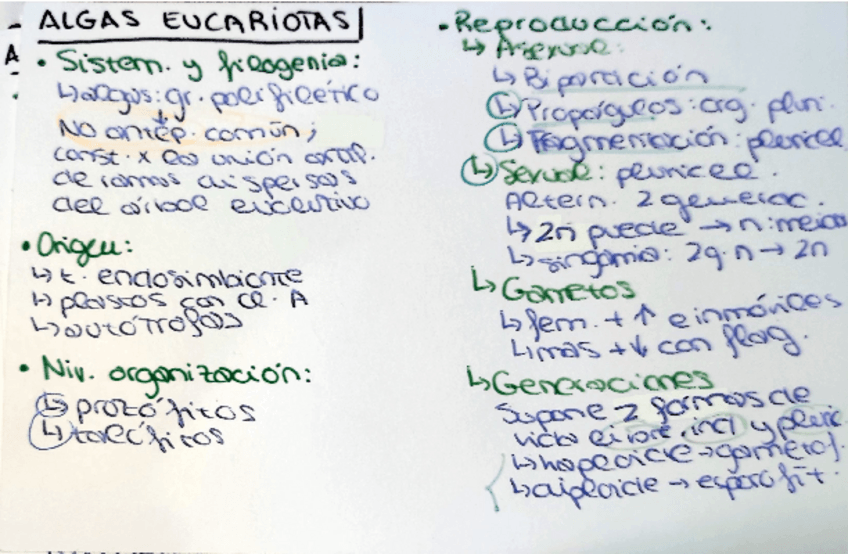 ALGAS EUCARIOTAS
• Sistem. y filogenia:
↳ algas: gr. polifilético
NO antep. común;
const. x la unión artif.
de ramas dispersas
del árbol evolutivo
• Origen:
↳ t. endosimbionte
↳ plastos con cl. A
↳ autótrofas
• Niv. organización:
↳ protófitos
↳ talófitos
• Reproducción:
↳ Asexual:
↳ Bipartición
↳ Propágulos: org. pluri.
↳ Fragmentación: pluricel
↳ Sexual: pluricel.
Altern. 2 generac.
↳ 2n puede → n: meios
↳ singamia: 2g. n → 2n
↳ Gametos
↳ fem. + ↑ e inmóviles
↳ mas + ↓ con flag.
↳ Generaciones
Supone 2 formas de
vida libre, y
↳ haploide → gametof.
↳ diploide → esporofit.